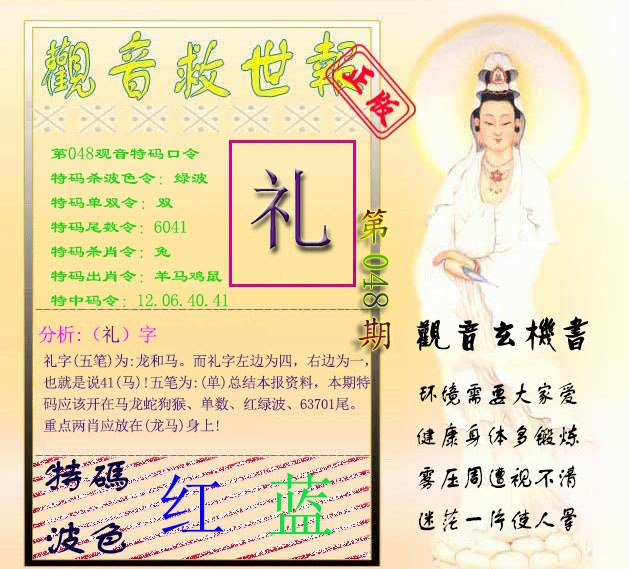 觀音救世報
正版
第048观音特码口令
特码杀波色令: 绿波
特码单双令: 双
特码尾数令: 6041
特码杀肖令: 兔
特码出肖令: 羊马鸡鼠
特中码令: 12.06.40.41
礼
第048期
分析:（礼）字
礼字(五笔)为:龙和马。而礼字左边为四，右边为一,
也就是说41(马)!五笔为:(单)总结本报资料，本期特
码应该开在马龙蛇狗猴、单数、红绿波、63701尾。
重点两肖应放在(龙马)身上!
特碼
波色
红 蓝
觀音玄機書
环境需要大家爱
健康身体多锻炼
雾压周遭视不清
迷茫一片使人晕